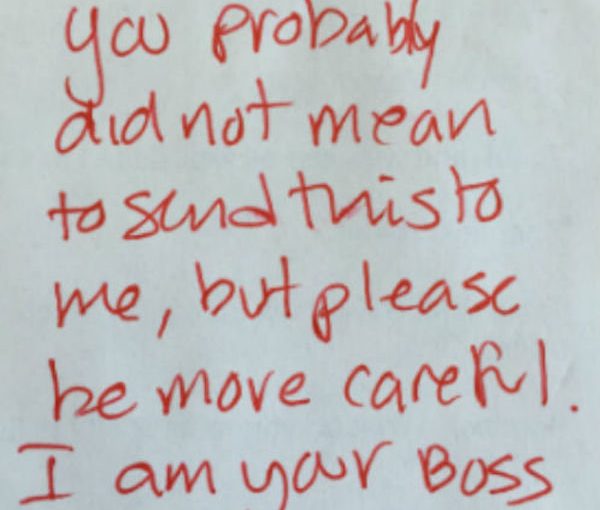 you probably
did not mean
to send this to
me, but please
be more careful.
I am your Boss